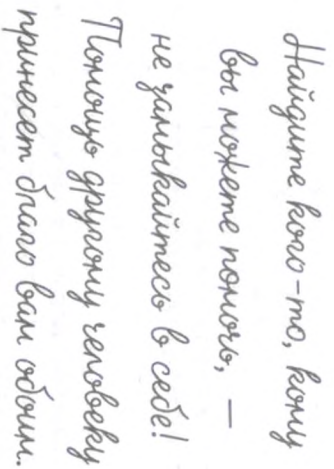 Найдите кого-то, кому
вы можете помочь, —
не замыкайтесь в себе!
Помощь другому человеку
принесет благо вам обоим.